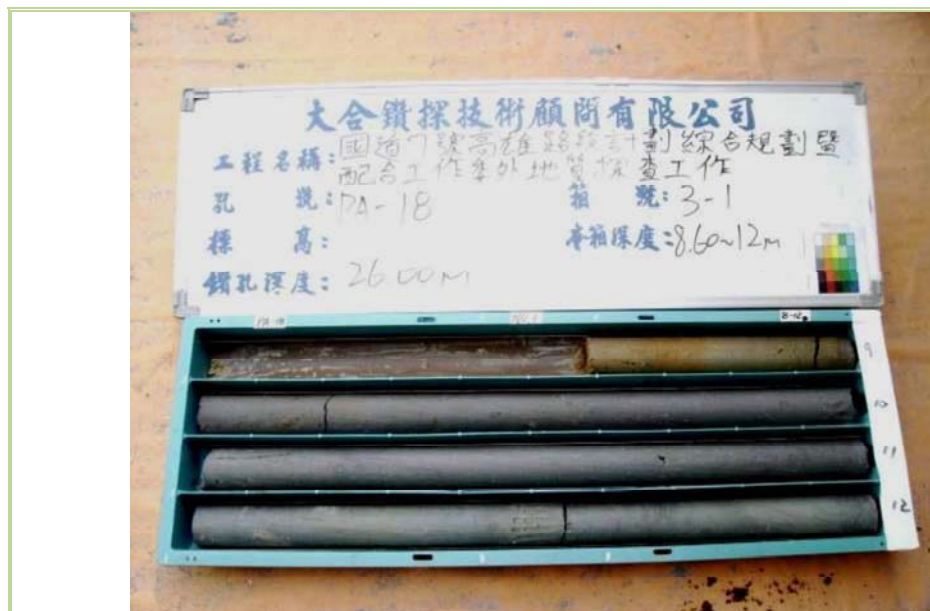 大合鑽探技術顧問有限公司
工程名稱:國道7號高雄路段計劃綜合規劃暨
配合工作委外地質探查工作
孔 號:PA-18 箱 號:3-1
標 高: 本箱深度:8.60~12m
鑽孔深度:26.00m
PA-18
9
10
11
12